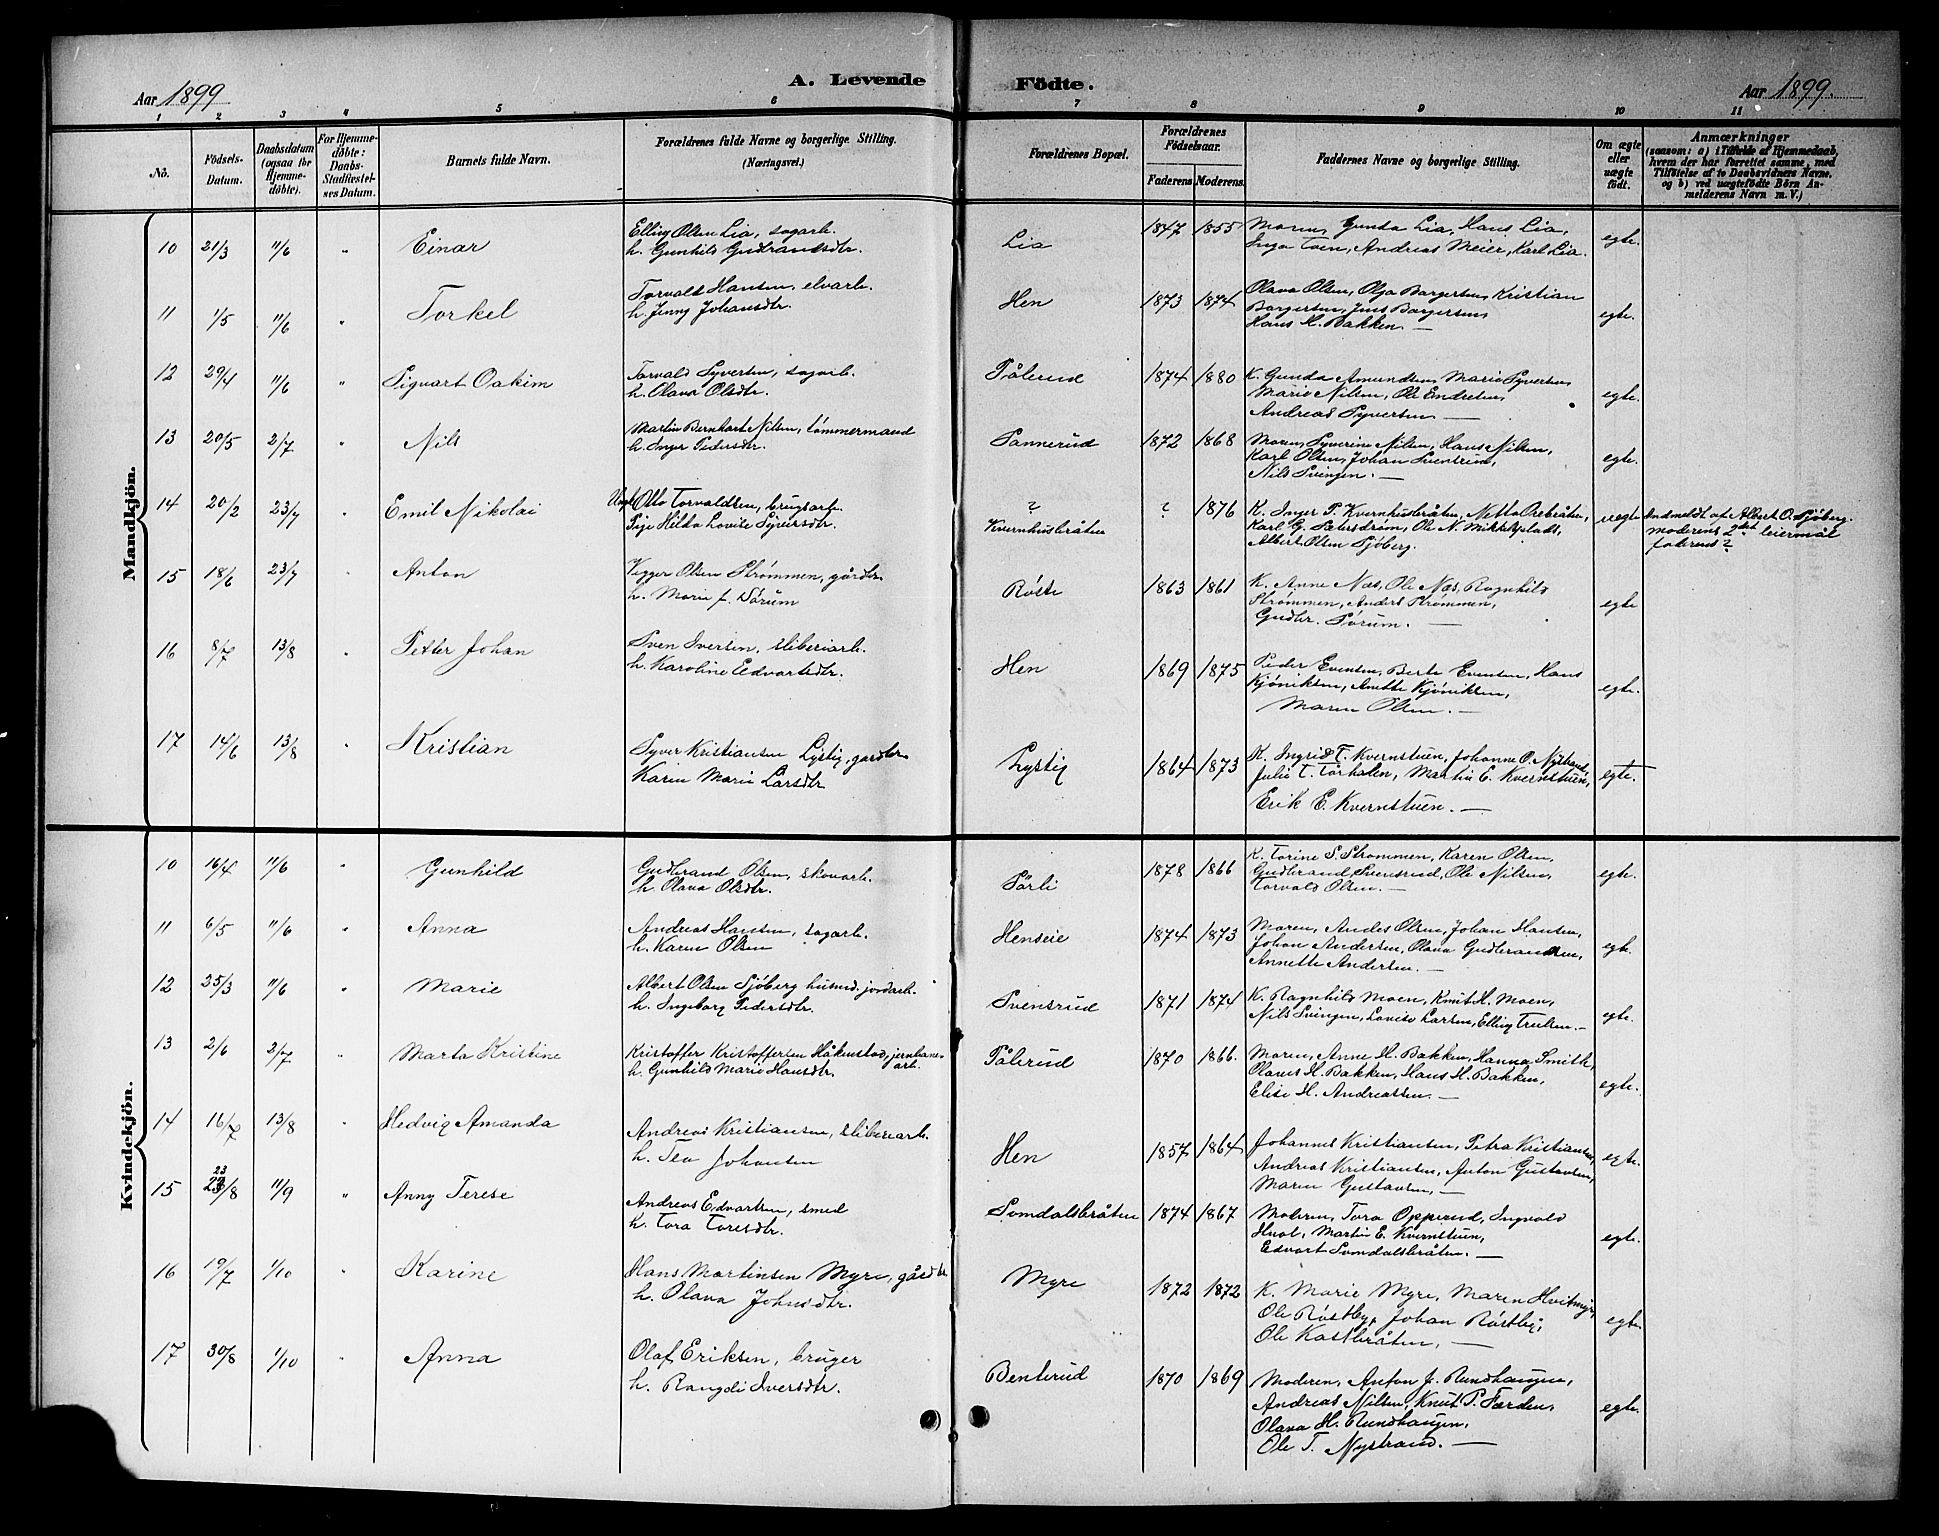 A. Levende Födte.
Aar 1899
Aar 1899.
1 2 3 4 5 6 7 8 9 10 11
No.
Födsels-Datum.
Daabsdatum (ogsaa for Hjemmedöbte).
For Hjemmedöbte: Daabs-Stadfæstelses Datum.
Barnets fulde Navn.
Forældrenes fulde Navne og borgerlige Stilling. (Næringsvei.)
Forældrenes Bopæl.
Forældrenes Födselsaar.
Faderens Moderens.
Faddernes Navne og borgerlige Stilling.
Om ægte eller uægte födt.
Anmærkninger (saasom: a) i Tilfælde af Hjemmedaab, hvem der har forrettet samme, med Tilföielse af to Daabsvidners Navne, og b) ved uægtefödte Börn Anmelderens Navn m. V.)
Mandkjön.
10 21/3 11/6 " Einar
Elling Olsen Lia, sagarb.
h. Gunhild Gudbrandsdtr.
Lia 1847 1855
Moren, Gunda Lia, Hans Lia,
Inga Toen, Andreas Meier, Karl Lia.
egte.
11 1/5 11/6 " Torkel
Torvald Hansen, elvarb.
h. Jenny Johansdtr.
Hen 1873 1874
Olava Olsen, Olga Borgersen, Kristian
Borgersen, Jens Borgersen,
Hans H. Bakken. —
egte.
12 29/4 11/6 " Sigvart Oakim
Torvald Syversen, sagarb.
h. Olava Olsdtr.
Pålerud 1874 1880
K. Gunda Amundsen, Marie Syversen,
Marie Nilsen, Ole Endresen,
Andreas Syversen —
egte.
13 20/5 2/7 " Nils
Martin Bernhart Nilsen, tømmermand
h. Inger Pedersdtr.
Sannerud 1872 1868
Moren, Syverine Nilsen, Hans Nilsen,
Karl Olsen, Johan Svensrud,
Nils Svingen. —
egte.
14 20/2 23/7 " Emil Nikolai
Ungk. Otto Torvaldsen, brugsarb.
Pige Hilda Lovise Syversdtr.
?
Kvernhusbråten ? 1876
K. Inger P. Kvernhusbråten, Netta Orebråten,
Karl G. Petersdrøm, Ole N. Mikkelsplads,
Albert Olsen Sjøberg.
uegte
Anmeldt af Albert O. Sjøberg.
moderens 2det leiermål
faderens ?
15 18/6 23/7 " Anton
Vegger Olsen Strømmen, gårdbr.
h. Marie f. Sørum
Røste 1863 1861
K. Anne Næs, Ole Næs, Ragnhild
Strømmen, Anders Strømmen,
Gudbr. Sørum. —
egte
16 8/7 13/8 " Petter Johan
Sven Iversen, sliberiarb.
h. Karoline Edvartsdtr.
Hen 1869 1875
Peder Evensen, Berte Evensen, Hans
Kjøniksen, Anette Kjøniksen,
Maren Olsen. —
egte.
17 14/6 13/8 " Kristian
Syver Kristiansen Lystig, gårdbr
Karen Marie Larsdtr
Lystig 1864 1873
K. Ingrid T. Kvernstuen, Johanne O. Nystrand,
Julie T. Torhalen, Martin E. Kvernstuen,
Erik E. Kvernstuen. —
egte.
Kvindekjön.
10 16/4 11/6 " Gunhild
Gudbrand Olsen, skovarb.
h. Olava Olsdtr.
Sørli 1878 1866
K. Torine S. Strømmen, Karen Olsen,
Gudbrand Svensrud, Ole Nilsen,
Torvald Olsen. —
egte.
11 6/5 11/6 " Anna
Andreas Hansen, sagarb.
h. Karen Olsen
Henseie 1874 1873
Moren, Andes Olsen, Johan Hansen,
Johan Andersen, Olava Gudbrandsen,
Annette Andersen. —
egte.
12 25/3 11/6 " Marie
Albert Olsen Sjøberg husmd. jordarb.
h. Ingeborg Pedersdtr.
Svensrud 1871 1874
K. Ragnhild Moen, Knut H. Moen,
Nils Svingen, Lovise Larsen, Elling Trulsen. —
egte.
13 2/6 2/7 " Marta Kristine
Kristoffer Kristoffersen Håkenstad, jernbanearb.
h. Gunhild Marie Hansdtr.
Pålerud 1870 1866.
Moren, Anne H. Bakken, Hanna Smith,
Olaves H. Bakken, Hans H. Bakken,
Elise H. Andreassen. —
egte.
14 16/7 13/8 " Hedvig Amanda
Andreas Kristiansen, sliberiarb.
h. Tea Johansen
Hen 1857 1864
Johannes Kristiansen, Petra Kristiansen,
Andreas Kristiansen, Anton Gustavsen,
Maren Gustavsen, —
egte.
15 23/8 11/9 " Anny Terese
Andreas Edvartsen, smed
h. Tora Toresdtr.
Somdalsbråten 1874 1867
Moderen, Tora Opperud, Ingvald
Hval, Martin E. Kvernstuen,
Edvart Somdalsbråten. —
egte.
16 19/7 1/10 " Karine
Hans Martinsen Myre, gårdbr
h. Olava Johnsdtr.
Myre 1872 1872
K. Marie Myre, Maren Hvitmyr,
Ole Røstby, Johan Røstby,
Ole Kastbråten, —
egte.
17 30/8 1/10 " Anna
Olaf Eriksen, bruger
h. Rangdi Iversdtr.
Benterud 1870 1869
Moderen, Anton J. Rundhaugen,
Andreas Nilsen, Knut P. Færden,
Olava H. Rundhaugen,
Ole T. Nystrand. —
egte.